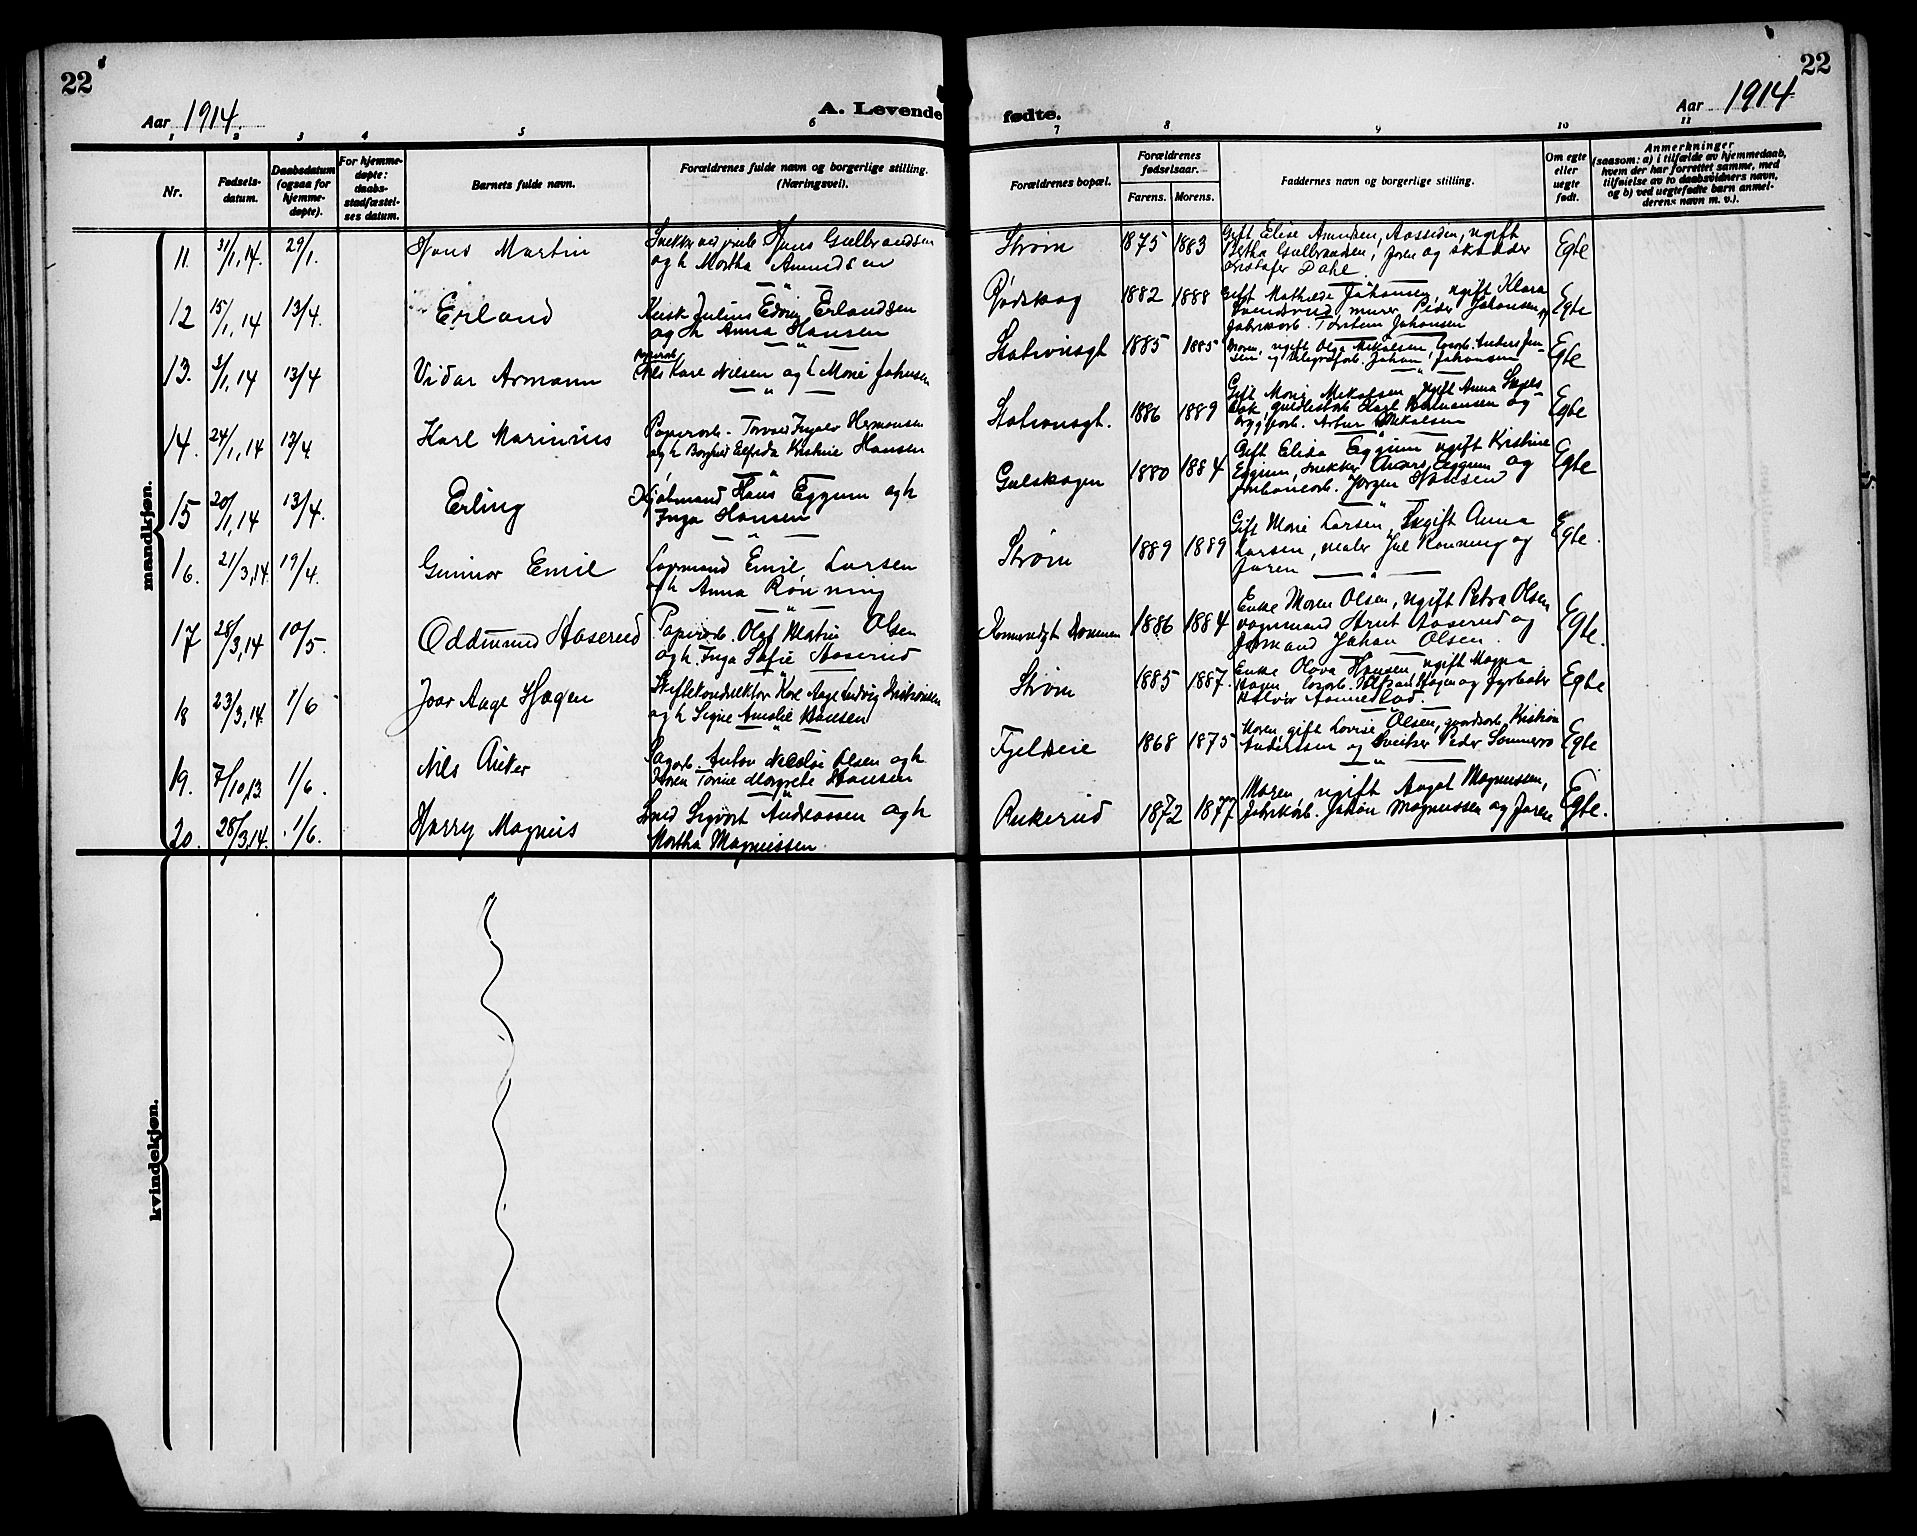 22
22
Aar 1914.
A. Levende fødte.
Aar 1914
1 2 3 4 5 6 7 8 9 10 11
Nr.
Fødsels-
datum.
Daabsdatum
(ogsaa for
hjemme-
døpte).
For hjemme-
døpte:
daabs-
stadfæstel-
ses datum.
Barnets fulde navn.
Forældrenes fulde navn og borgerlige stilling.
(Næringsvei).
Forældrenes bopæl.
Forældrenes
fødselsaar.
Farens. Morens.
Faddernes navn og borgerlige stilling.
Om egte
eller
uegte
født.
Anmerkninger
(saasom: a) i tilfælde av hjemmedaab,
hvem der har forrettet samme, med
tilføielse av to daabsvidners navn,
og b) ved uegtefødte barn anmel-
derens navn m. v.).
mandkjøn.
11. 31/1,14. 29/1. Hans Martin
Hans Gulbrandsen
og h Martha Amundsen
Strøm 1875 1883
Gift Elise Amundsen, Aassiden, ugift
Bertha Gulbrandsen, faren og
Kristofer Dahl
Egte
12 15/1,14 13/4. Erland
Kusk Julius Edvin Erlandsen
og h Anna Hansen
Rødskog 1882 1888
Gift Mathilde Johansen, ugift Klara
murer Peder Johansen og
fabrikarb. Torstein Johansen
Egte
13. 3/1,14 13/4 Vidar Armann
Papirarb.
Nils Kare Nilsen og h Marie Johnsen
Stationsgt 1885 1885
Moren, ugift Olga Mikalsen,
Johan Johansen
Egte
14. 24/1,14 13/4 Karl Marinius
Papirarb. Torvald Ingolv Hermansen
og h Borghild Elfrida Kristine Hansen
Stationsgt. 1886 1889
Gift Marie Mikalsen, ugift Anna
Karl Hermansen og
bryggarb. Artur Mikalsen
Egte
15 20/1,14 13/4. Erling
Kjøbmand Hans Eggum og h
Inga Hansen
Gulskogen 1880 1884
Gift Elida Eggum, ugift Kristine
Eggum, snekker Eggum og
Jørgen Hansen
Egte
16. 21/3,14. 19/4. Gunnar Emil
Lagermand Emil Larsen
og h Anna Rønning
Strøm 1889 1889
Gift Marie Larsen, ugift Anna
Larsen, maler Jul Rønning og
faren
Egte.
17 28/3,14 10/5. Oddmund Haserud
Papirarb. Olaf Martin Olsen
og h. Inga Sofie Haserud
1886 1884
Enke Maren Olsen, ugift Petra Olsen
vognmand Haserud og
Johan Olsen.
Egte.
18 23/3,14. 1/6 Ivar Aage Hagen
Skiftekonduktør Karl Aage Ludvig Kristiansen
og h Signe Amalie Hansen
Strøm 1885 1887.
Enke Olava Hansen, ugift Magna
Hagen, Hagen og fyrbøter
Halvor
Egte
19. 7/10,13 1/6. Nils
Sagarb. Anton Nicolai Olsen og h
Karen Torine Margrete Hansen
Fjeldseie 1868 1875
Moren, gift Lovise Olsen, gaardsarb. Kristian
Andersen og Peder
Egte
20. 28/3,14. 1/6. Harry Magnus
Smed Sigvart Andreassen og h
Martha Magnussen.
Rukerud 1872 1877
Moren, ugift Aagot Magnussen,
fabrikarb. Johan Magnussen og faren
Egte.
kvindekjøn.